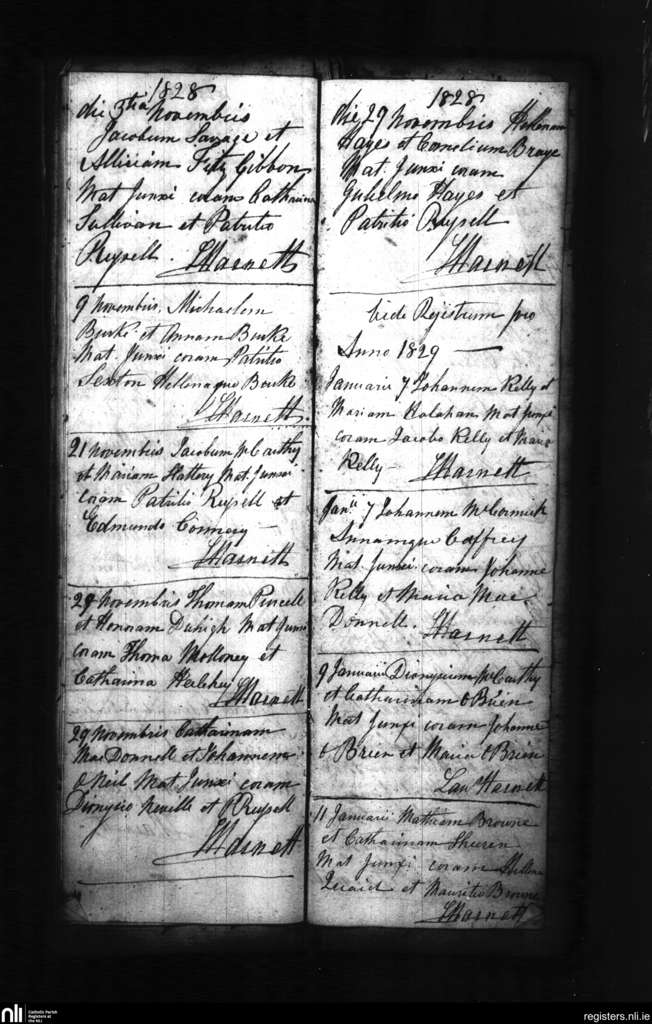 1828
die 3tia Novembris
Jacobum Savage et
Alliciam Fitz Gibbon
Mat Junxi coram Catharina
Sullivan et Patritio
Russell. LHarnett
9 Novembris, Michaelem
Burke et Annam Burke
Mat. Junxi coram Patritio
Sexton Hellenaque Bourke
LHarnett
21 Novembris Jacobum McCarthy
et Mariam Flattery Mat. Junxi
coram Patritio Russell et
Edmundo Connery
LHarnett
29 Novembris Thomam Purcell
et Honoram Duhigh Mat Junxi
coram Thoma Molloney et
Catharina LHarnett
29 Novembris Catharinam
MacDonnell et Johannem
O Neil Mat. Junxi coram
Dionysio Neville et P Russell
LHarnett
1828
die 29 Novembris Hellenam
Hayes et Cornelium
Mat. Junxi coram
Gulielmo Hayes et
Patritio Russell
LHarnett
Vide Registrum pro
Anno 1829
Januarii 7 Johannem Kelly et
Mariam Mat Junxi
coram Jacobo Kelly et Maria
Kelly LHarnett
Janii 7 Johannem McCormick
Annamque Caffrey
Mat. Junxi coram Johanne
Kelly et Maria Mac
Donnell. LHarnett
9 Januarii Dionysium McCarthy
et Catharinam O Brien
Mat Junxi coram Johanne
O Brien et Maria O Brien
Lau Harnett
11 Januarii Mathiam Browne
et Catharinam
Mat Junxi coram
Quaid et Mauritio Browne
LHarnett
nli
Catholic Parish
Registers at
the NLI
registers.nli.ie